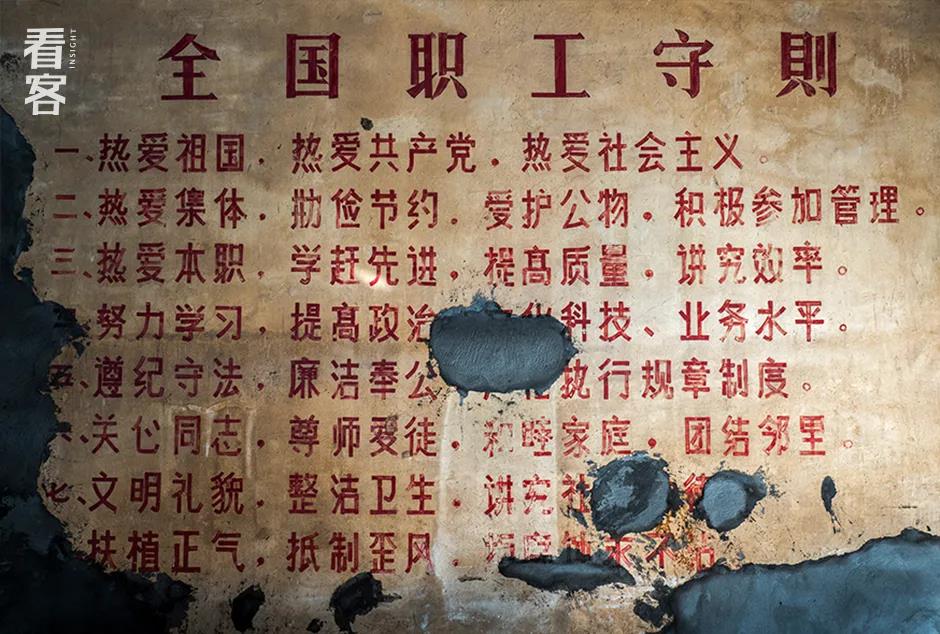 看客
INSIGHT
全国职工守則
一、热爱祖国，热爱共产党，热爱社会主义。
二、热爱集体，勤俭节约，爱护公物，积极参加管理。
三、热爱本职，学赶先进，提高质量，讲究效率。
努力学习，提高政治 化科技、业务水平。
五、遵纪守法，廉洁奉公 执行规章制度。
六、关心同志，尊师爱徒，和睦家庭，团结邻里。
七、文明礼貌，整洁卫生，讲究社 德
扶植正气，抵制歪风， 不沾